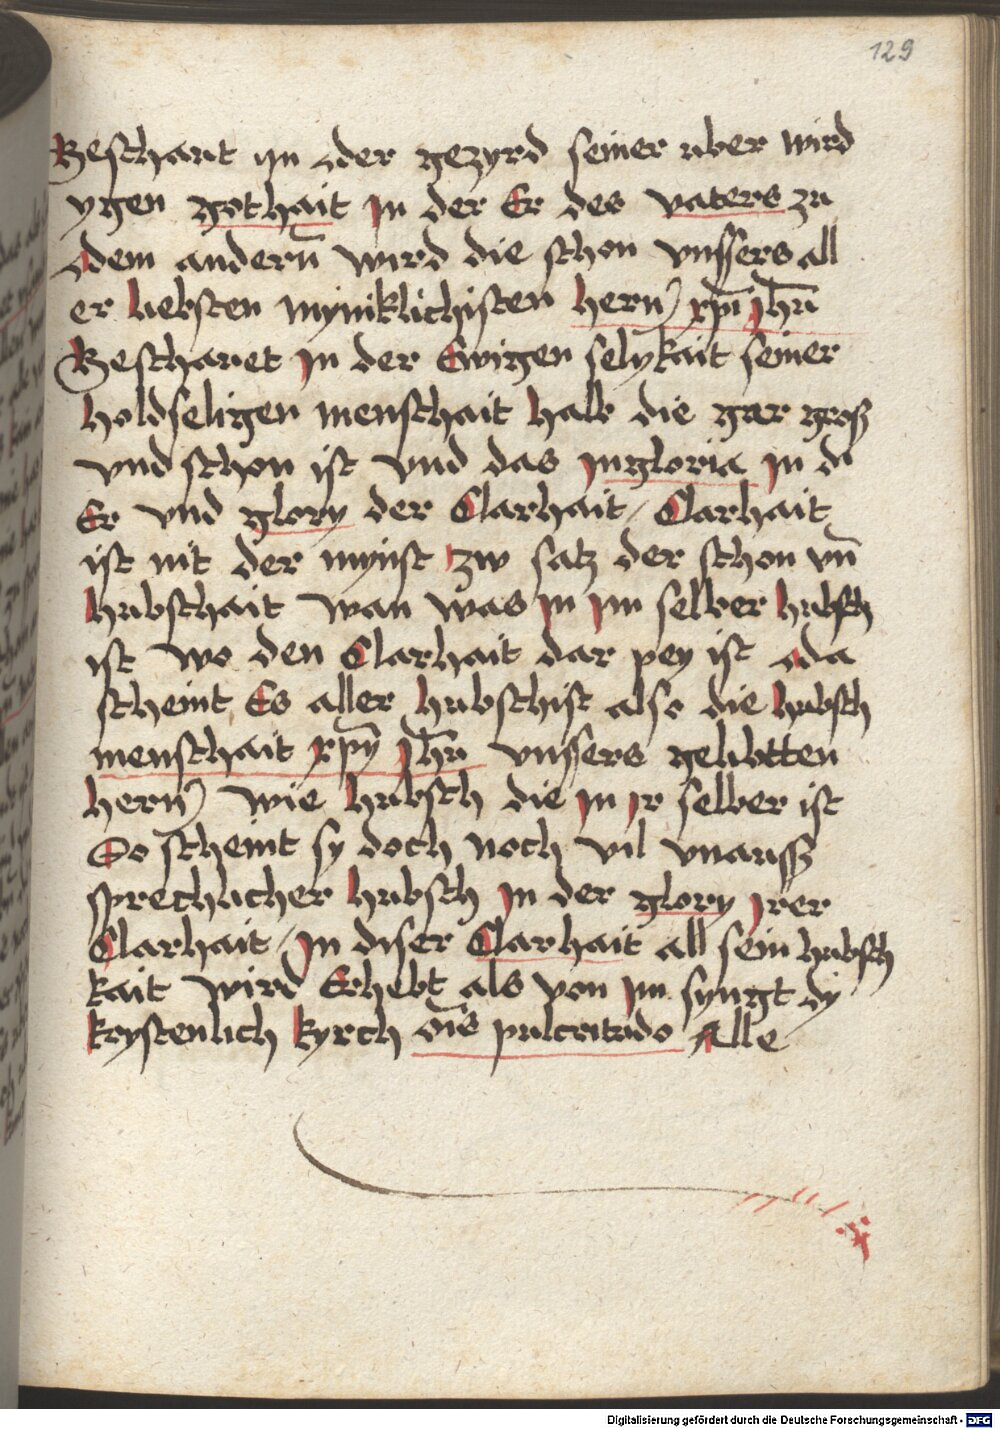 129
Beschaut jn der gezyrd seiner uber wird
ygen gothait jn der Er des vaters zu
dem anderñ wird die schon vnssers all
er liebsten myniklichisten hern xp̄i jh̄u
Beschauet jn der Ewigen selykait seiner
holdseligen menschait halb die gar groß
vnd schon ist vnd das jn gloria jn di
Er vnd glory der Clarhait / Clarhait
ist nit der mynst zw satz der schon vn̄
hubschait wan was jn jm selber hubsch
ist wo den Clarhait dar pey ist da
scheint Es aller hubschist also die hubsch
menschait xp̄y jh̄u vnssers gelibtten
hern wie hubsch die jn jr selber ist
So scheint sy doch noch vil vnauß
sprechlicher hubsch jn der glory jrer
Clarhait / jn diser Clarhait all sein hubsch
kait wird Erhebt als von jm syngt dy
krystenlich kyrch om̄s pulcritudo Alle
Digitalisierung gefördert durch die Deutsche Forschungsgemeinschaft - DFG